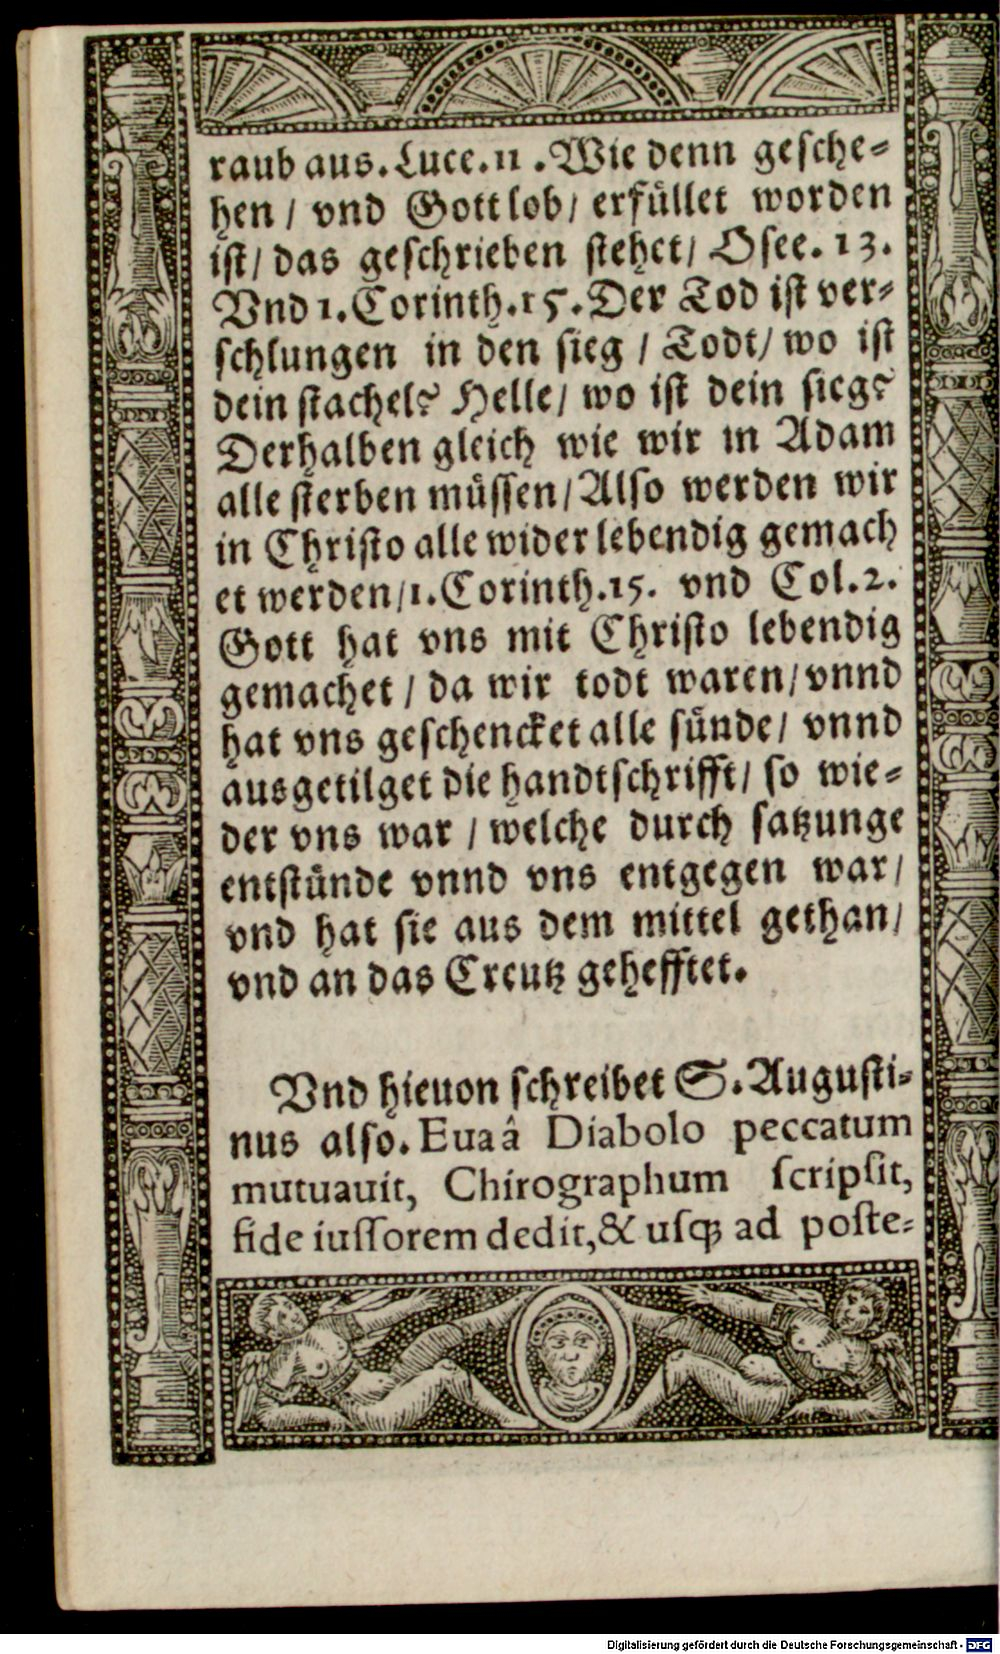 raub aus. Luce. 11. Wie denn gesche⸗
hen / vnd Gott lob / erfüllet worden
ist / das geschrieben stehet / Osee. 13.
Vnd 1. Corinth. 15. Der Tod ist ver⸗
schlungen in den sieg / Todt / wo ist
dein stachel? Helle / wo ist dein sieg?
Derhalben gleich wie wir in Adam
alle sterben müssen / Also werden wir
in Christo alle wider lebendig gemach
et werden / 1. Corinth. 15. vnd Col. 2.
Gott hat vns mit Christo lebendig
gemachet / da wir todt waren / vnnd
hat vns geschencket alle sünde / vnnd
ausgetilget die handtschrifft / so wie⸗
der vns war / welche durch satzunge
entstünde vnnd vns entgegen war /
vnd hat sie aus dem mittel gethan /
vnd an das Creutz gehefftet.
Vnd hieuon schreibet S. Augusti⸗
nus also. Eua â Diabolo peccatum
mutuauit, Chirographum scripsit,
fide iussorem dedit, & usq; ad poste⸗
Digitalisierung gefördert durch die Deutsche Forschungsgemeinschaft - DFG